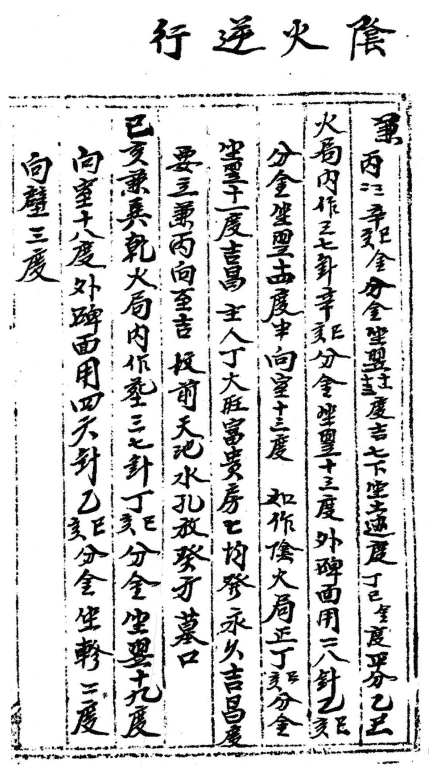 陰火逆行
兼丙 辛巳辛亥分金坐翌 度吉 七下坐 度 丁巳 金度 分 乙丑
火局内作三七針辛巳辛亥分金坐翌十三度外碑面用二八針乙巳亥
分金坐翌 度半向室十三度 如作陰火局正丁巳亥分金
坐翌十一度吉昌 主人丁大旺富貴房房均發永久吉昌度
要立兼丙向至吉 前天池水孔放癸方墓口
巳亥兼巽乾火局内作塋三七針丁巳亥分金坐翌十九度
向室十八度外碑面用四六針乙巳亥分金坐軫二度
向壁三度